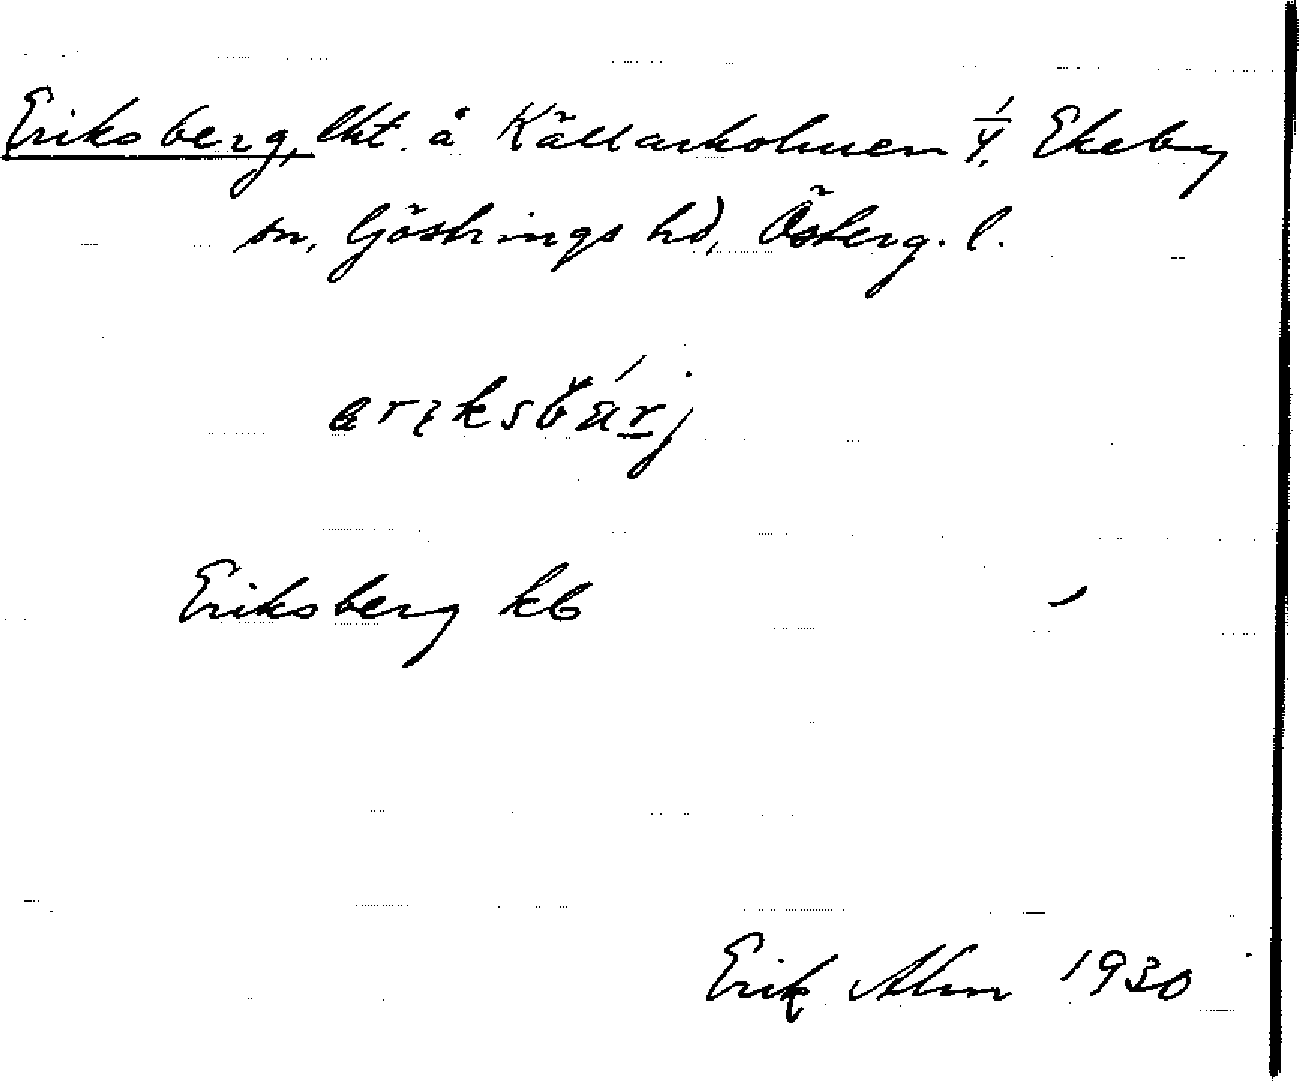 Eriksberg, lht. å Källarholmen 1/4, Ekeby
sn, Göstrings hd, Österg. l.
erıksbärj
Eriksberg kb
Erik Alm 1930